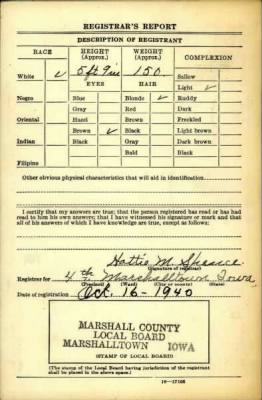 REGISTRAR'S REPORT
DESCRIPTION OF REGISTRANT
RACE HEIGHT (Approx.) WEIGHT (Approx.) COMPLEXION
White ✓ 5 ft 9 in 150 Sallow
EYES HAIR Light ✓
Negro Blue Blonde ✓ Ruddy
Gray Red Dark
Oriental Hazel Brown Freckled
Brown ✓ Black Light brown
Indian Black Gray Dark brown
Bald Black
Filipino
Other obvious physical characteristics that will aid in identification
I certify that my answers are true; that the person registered has read or has had
read to him his own answers; that I have witnessed his signature or mark and that
all of his answers of which I have knowledge are true, except as follows:
Hattie M.
(Signature of registrar)
Registrar for 4th Marshalltown Iowa
(Precinct) (Ward) (City or county) (State)
Date of registration Oct. 16-1940
MARSHALL COUNTY
LOCAL BOARD
MARSHALLTOWN IOWA
(STAMP OF LOCAL BOARD)
(The stamp of the Local Board having jurisdiction of the registrant
shall be placed in the above space.)